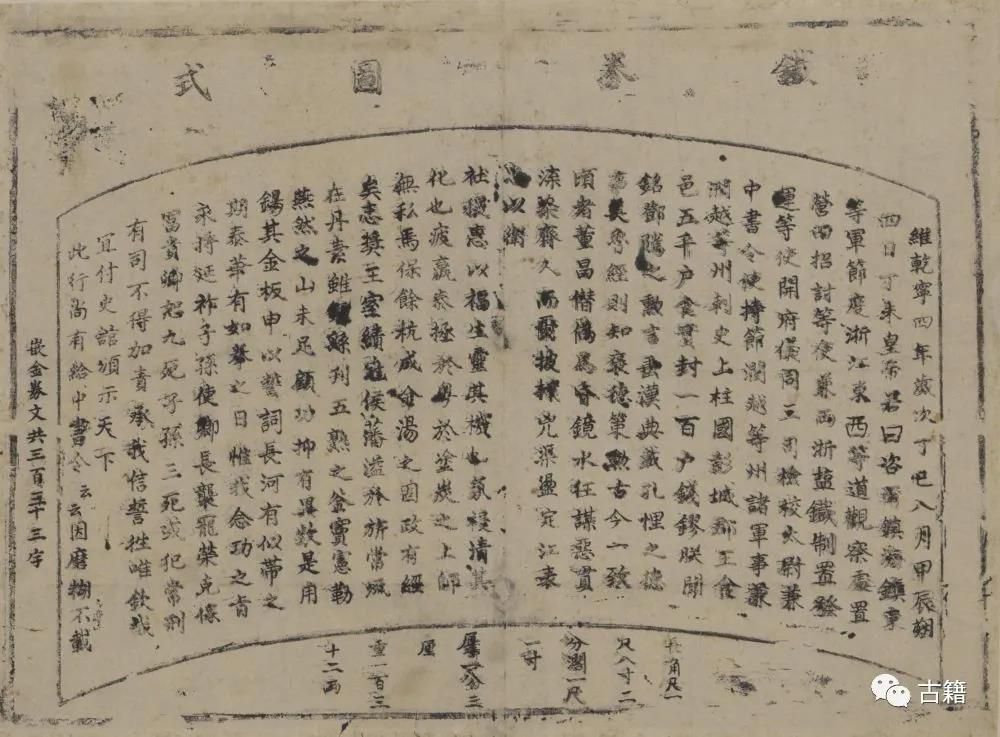 鐵券圖式
維乾寧四年歲次丁巳八月甲辰朔
四日丁未皇帝若曰咨爾鎮海鎮東
等軍節度浙江東西等道觀察處置
營田招討等使兼兩浙鹽鐵制置發
運等使開府儀同三司檢校太尉兼
中書令使持節潤越等州諸軍事兼
潤越等州刺史上柱國彭城郡王食
邑五千戶食實封一百戶錢鏐朕聞
銘鄧隲之勳言垂漢典載孔悝之德
事美魯經則知褒德策勲古今一致
頃者董昌僭偽爲昏鏡水狂謀惡貫
渫染齊人而爾披攘兇渠盪定江表
忠以衛
社稷惠以福生靈其機也氛祲清其
化也疲羸泰拯於粵於塗炭之上師
無私焉保餘杭成金湯之固政有經
矣志獎王室績冠侯藩溢於旂常流
在丹素雖繇刊五熟之釜竇憲勒
燕然之山未足顧功抑有異數是用
錫其金板申以誓詞長河有似帶之
期泰華有如拳之日惟我念功之旨
永將延祚子孫使卿長襲寵榮克保
富貴卿恕九死子孫三死或犯常刑
有司不得加責承我信誓往唯欽哉
宜付史館頒示天下
此行尚有給中書令云云因磨糊不載
嵌金券文共三百三十三字
長角尺一
尺八寸二
分濶一尺
一寸
厚一分三
厘
重一百三
十二両
古籍